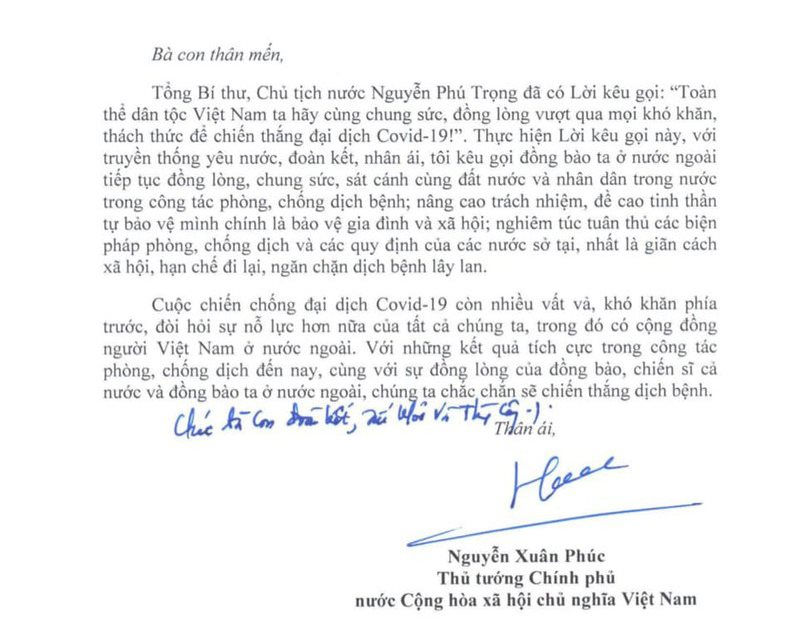 Bà con thân mến,
Tổng Bí thư, Chủ tịch nước Nguyễn Phú Trọng đã có Lời kêu gọi: “Toàn
thể dân tộc Việt Nam ta hãy cùng chung sức, đồng lòng vượt qua mọi khó khăn,
thách thức để chiến thắng đại dịch Covid-19!”. Thực hiện Lời kêu gọi này, với
truyền thống yêu nước, đoàn kết, nhân ái, tôi kêu gọi đồng bào ta ở nước ngoài
tiếp tục đồng lòng, chung sức, sát cánh cùng đất nước và nhân dân trong nước
trong công tác phòng, chống dịch bệnh; nâng cao trách nhiệm, đề cao tinh thần
tự bảo vệ mình chính là bảo vệ gia đình và xã hội; nghiêm túc tuân thủ các biện
pháp phòng, chống dịch và các quy định của các nước sở tại, nhất là giãn cách
xã hội, hạn chế đi lại, ngăn chặn dịch bệnh lây lan.
Cuộc chiến chống đại dịch Covid-19 còn nhiều vất vả, khó khăn phía
trước, đòi hỏi sự nỗ lực hơn nữa của tất cả chúng ta, trong đó có cộng đồng
người Việt Nam ở nước ngoài. Với những kết quả tích cực trong công tác
phòng, chống dịch đến nay, cùng với sự đồng lòng của đồng bào, chiến sĩ cả
nước và đồng bào ta ở nước ngoài, chúng ta chắc chắn sẽ chiến thắng dịch bệnh.
Chúc bà con đoàn kết, và
Thân ái,
Nguyễn Xuân Phúc
Thủ tướng Chính phủ
nước Cộng hòa xã hội chủ nghĩa Việt Nam